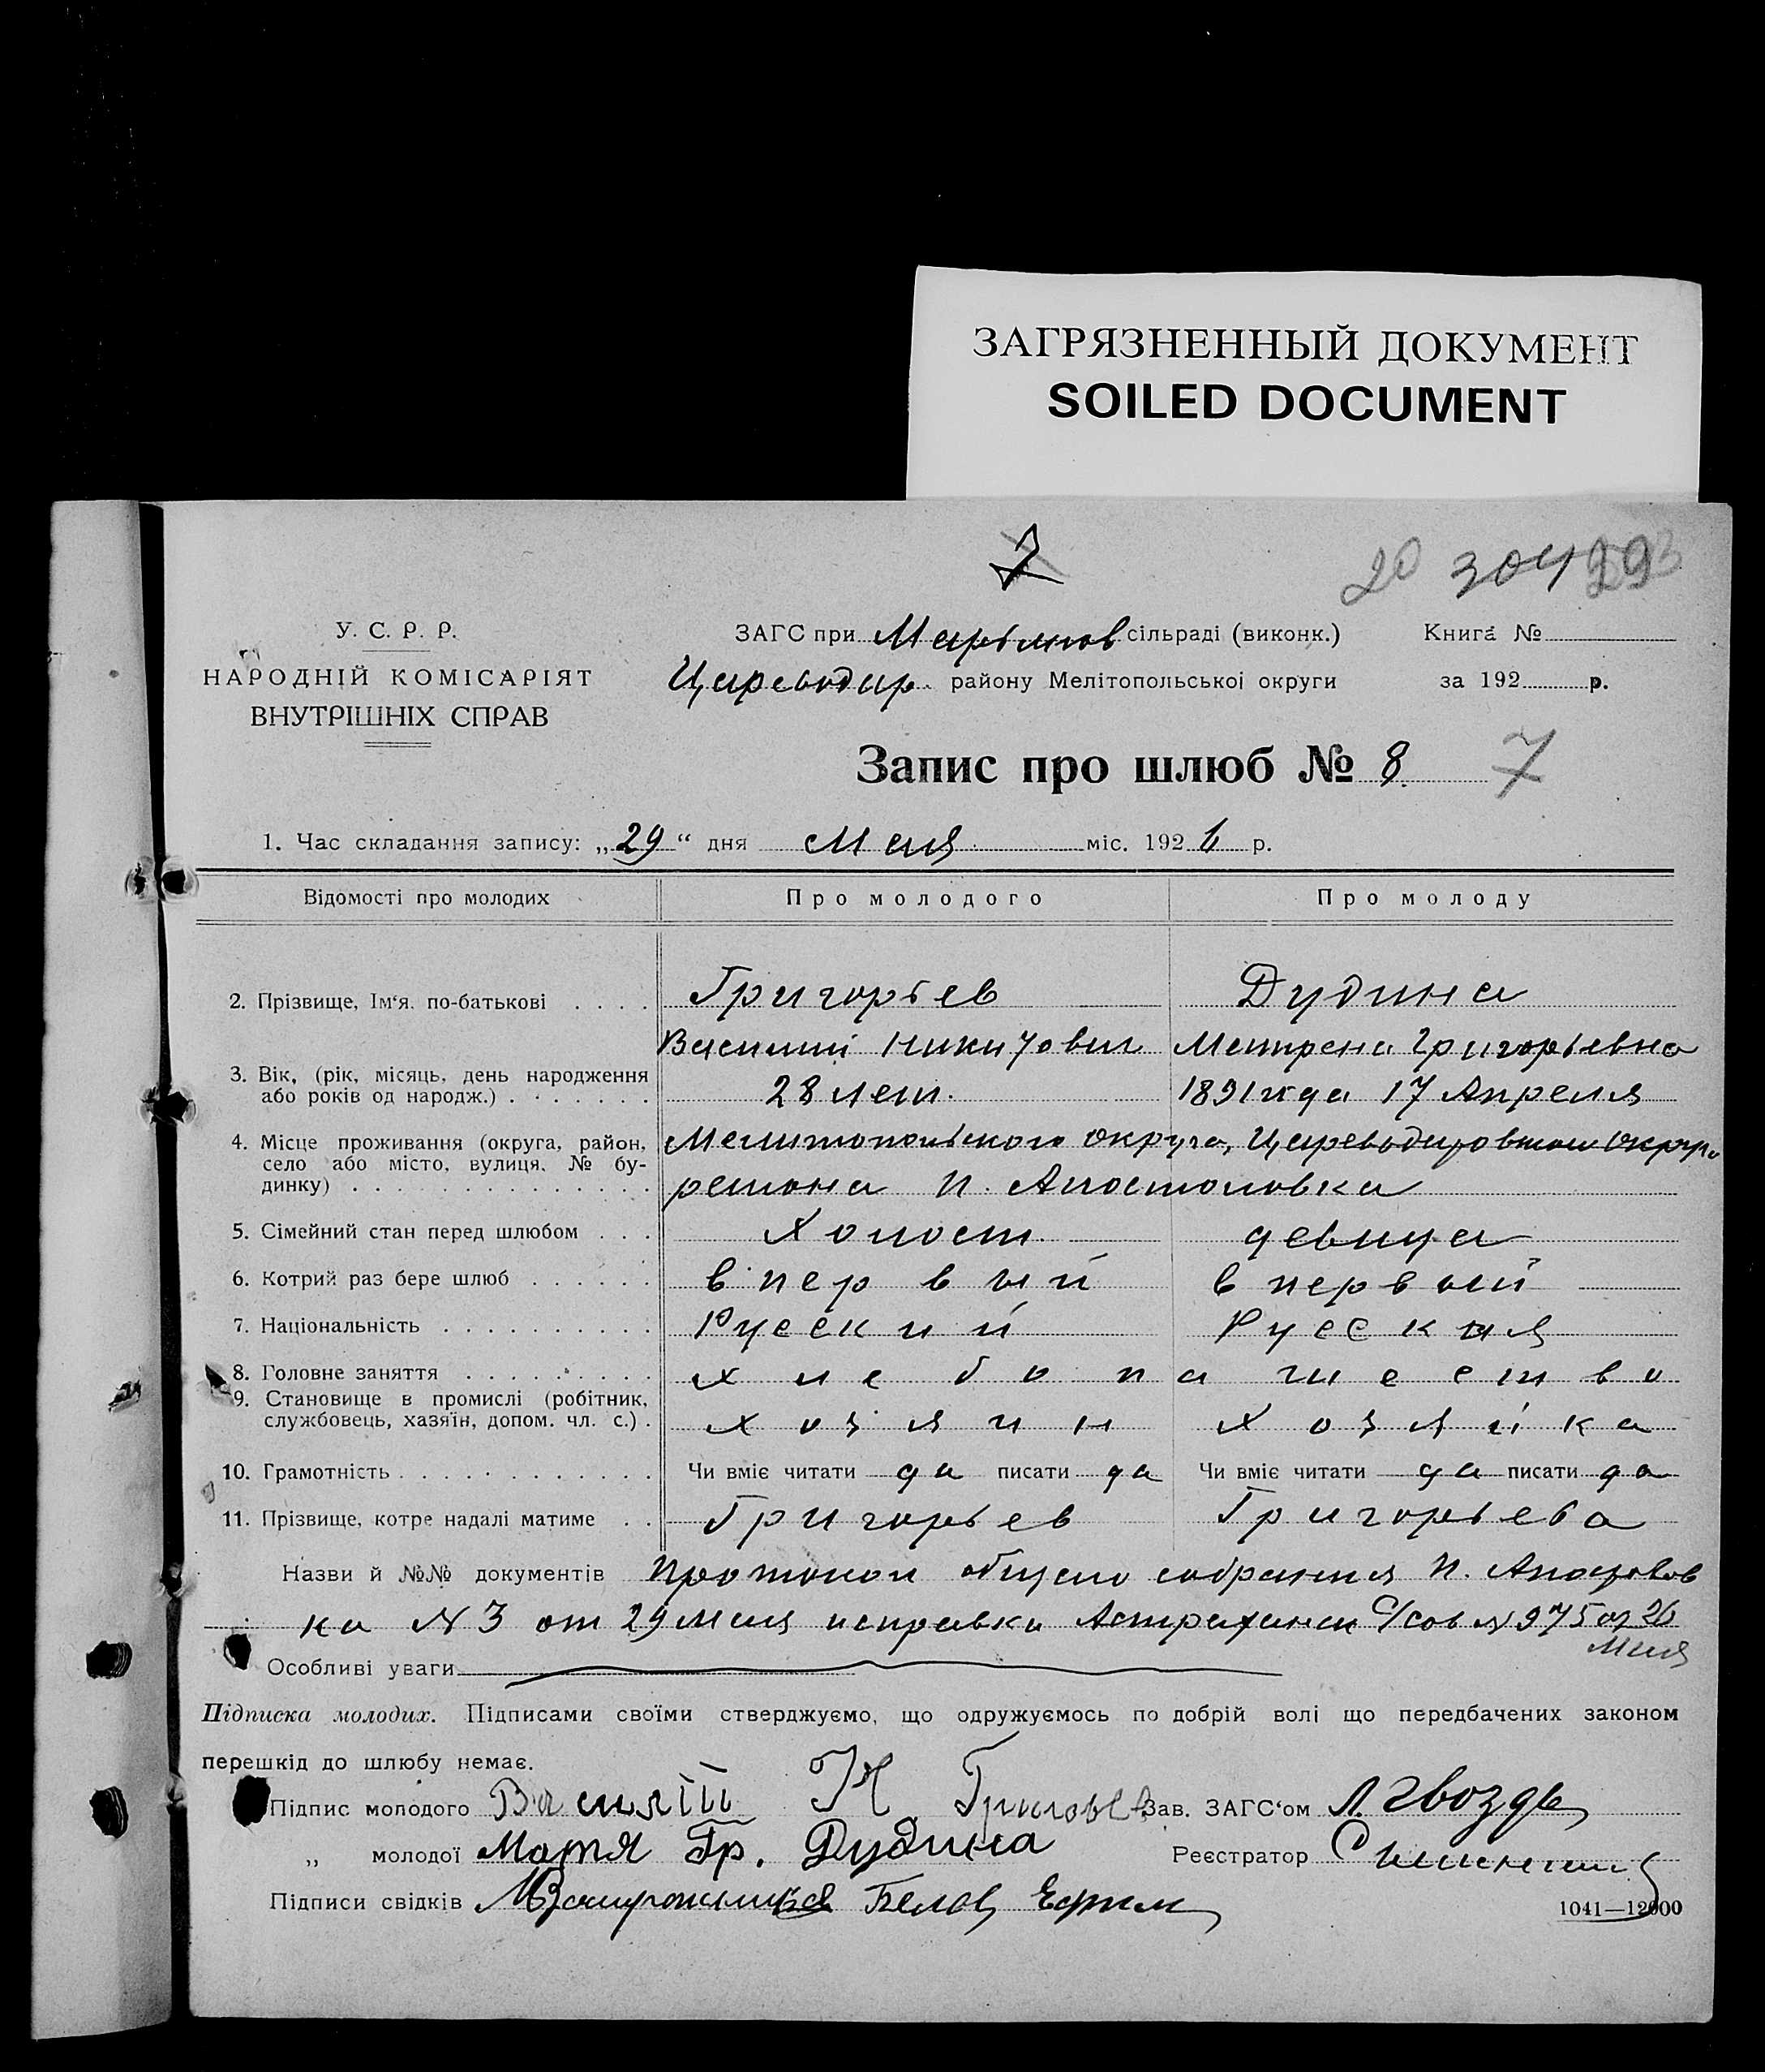 ЗАГРЯЗНЕННЫЙ ДОКУМЕНТ
SOILED DOCUMENT
7
20 304
У. С. Р. Р.
НАРОДНІЙ КОМІСАРІЯТ
ВНУТРІШНІХ СПРАВ
ЗАГС при сільраді (виконк.) Книга №
Цареводар району Мелітопольської округи за 192 р.
Запис про шлюб № 8 7
1. Час складання запису: „29“ дня Мая міс. 1926 р.
Відомості про молодих Про молодого Про молоду
2. Прізвище, Ім'я. по-батькові Григорьев Дудина
Василий Никитович Матрена Григорьевна
3. Вік, (рік, місяць, день народження
або років од народж.) 28 лет. 1891 года 17 Апреля
4. Місце проживання (округа, район, Мелитопольского округа,
село або місто, вулиця, № бу-
динку) района п. Апостоловка
5. Сімейний стан перед шлюбом Холост девица
6. Котрий раз бере шлюб в первый в первый
7. Національність Русский Русская
8. Головне заняття хлебопашество
9. Становище в промислі (робітник,
службовець, хазяїн, допом. чл. с.) хозяин хозяйка
10. Грамотність Чи вміє читати да писати да Чи вміє читати да писати да
11. Прізвище, котре надалі матиме Григорьев Григорьева
Назви й №№ документів Протокол общего собрания п. Апостолов
ка № 3 от 29 Мая исправки Астрахански С/сов № 975 от 26
Мая
Особливі уваги
Підписка молодих. Підписами своїми стверджуємо, що одружуємось по добрій волі що передбачених законом
перешкід до шлюбу немає.
Підпис молодого Василій Н Григорьев Зав. ЗАГС'ом Л. Гвоздь
„ молодої Мотя Гр. Дудина Реєстратор
Підписи свідків Белов Ефим
1041—12000